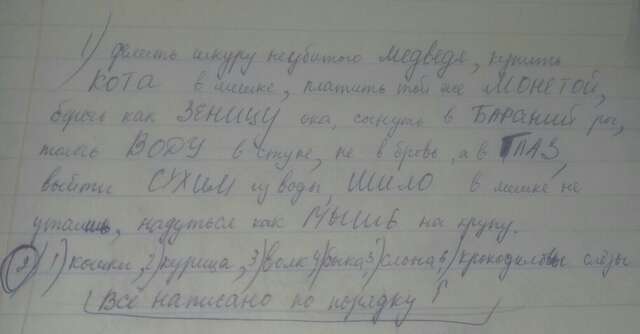 1) делить шкуру неубитого МЕДВЕДЯ, купить
КОТА в мешке, платить той же МОНЕТОЙ,
беречь как ЗЕНИЦУ ока, согнуть в БАРАНИЙ рог,
толочь ВОДУ в ступе, не в бровь, а в ГЛАЗ,
выйти СУХИМ из воды, ШИЛО в мешке не
утаишь, надуться как МЫШЬ на крупу.
2) 1) кошки, 2) курица, 3) волк 4) быка 5) слона 6) крокодиловы слёзы
Всё написано по порядку!